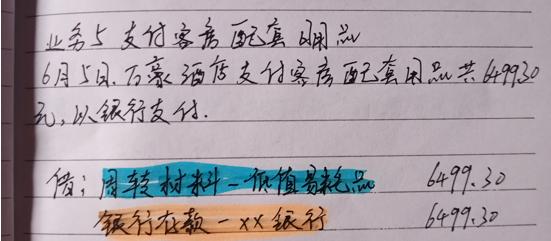 业务5 支付客房配套用品
6月5日,万豪酒店支付客房配套用品共6499.30
元,以银行支付.
借:周转材料-低值易耗品 6499.30
银行存款-xx银行 6499.30